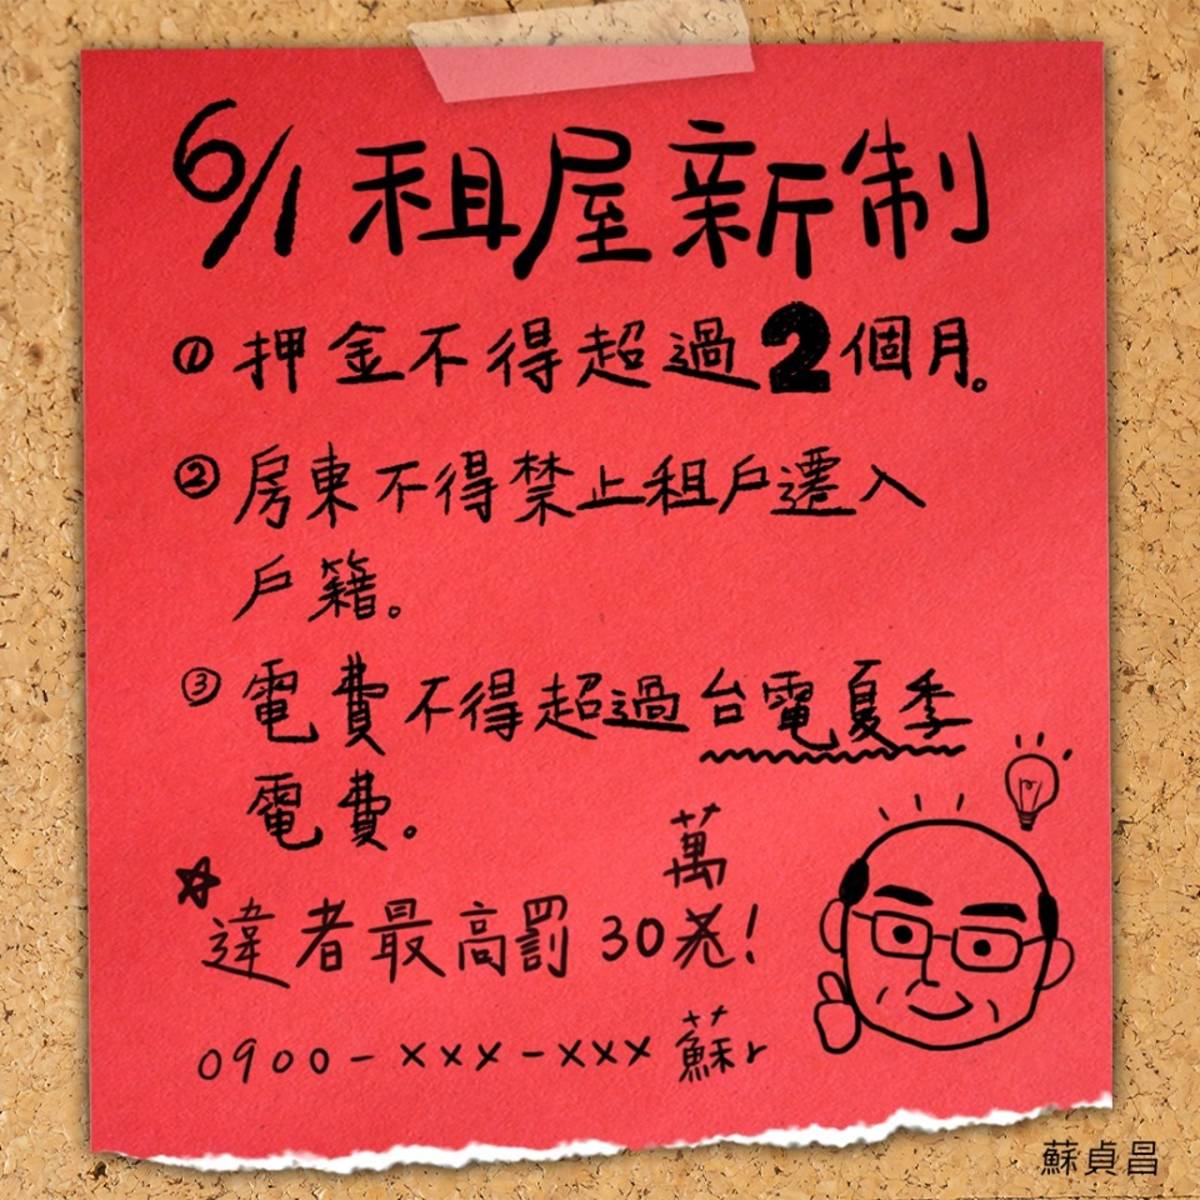 6/1 租屋新制
① 押金不得超過2個月。
② 房東不得禁止租戶遷入
戶籍。
③ 電費不得超過台電夏季
電費。
☆
萬
違者最高罰 30 !
0900-×××-××× 蘇r
蘇貞昌